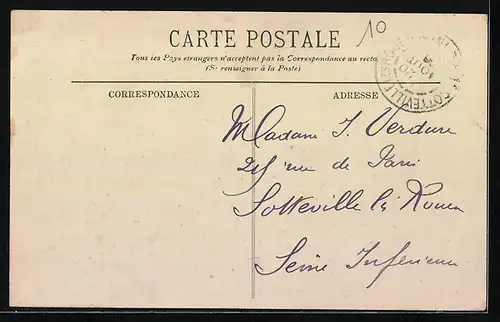 10
CARTE POSTALE
Tous les Pays étrangers n'acceptent pas la Correspondance au recto
(Se renseigner à la Poste)
CORRESPONDANCE
ADRESSE
Madame J. Verdure
rue de Paris
Sotteville lès Rouen
Seine Inférieure
SOTTEVILLE